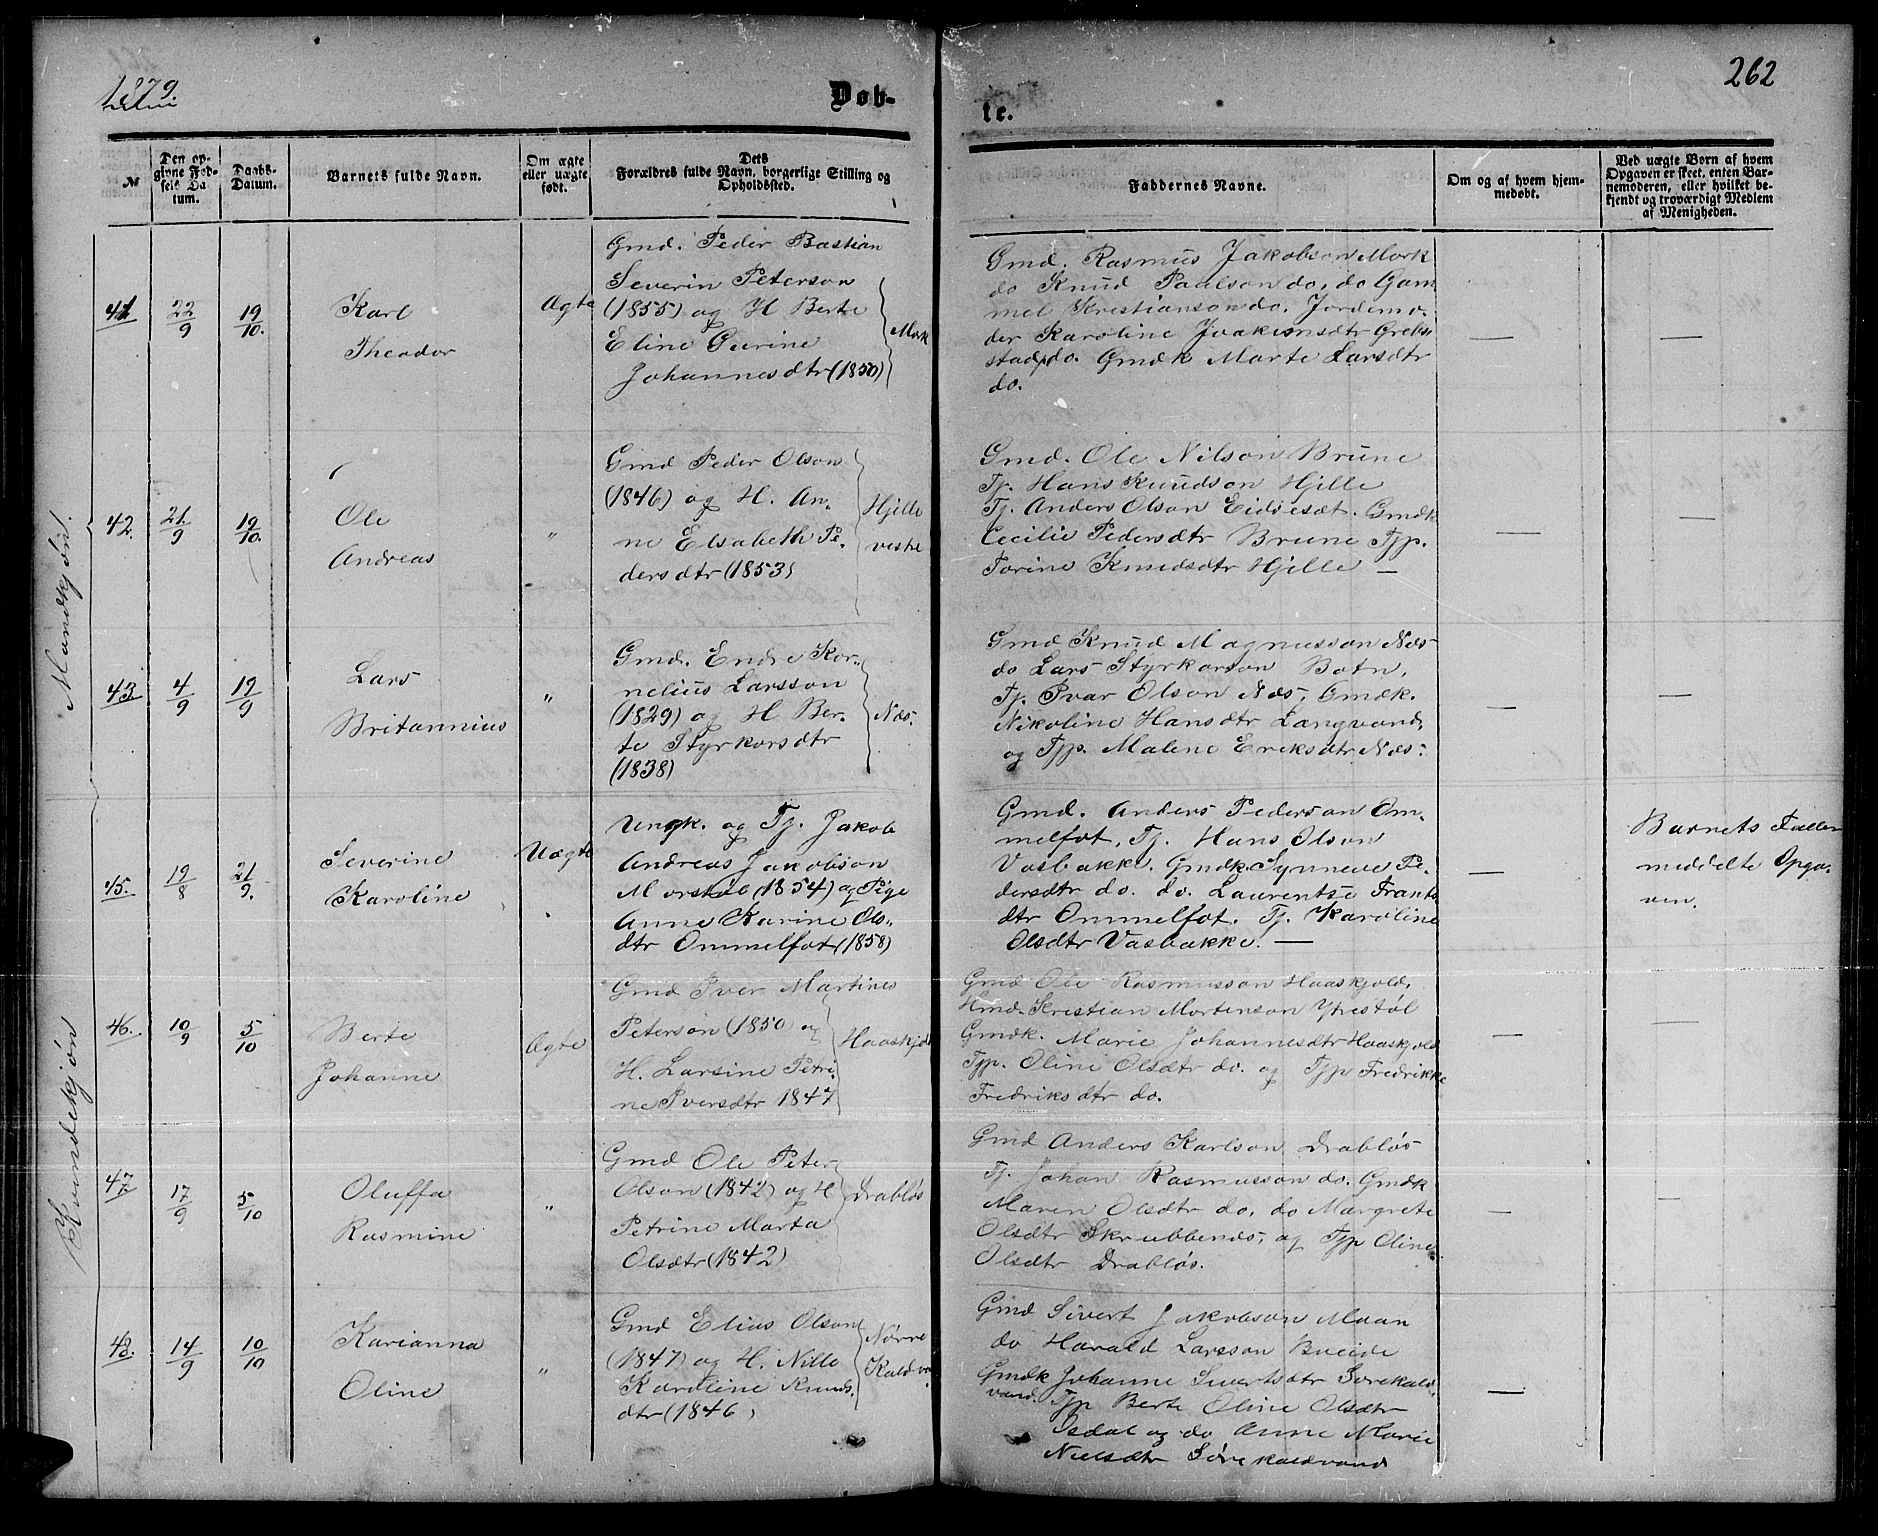 1879.
Døb-
te.
262
№
Den op-
givne Fød-
sels Da-
tum.
Daabs-
Datum.
Barnets fulde Navn.
Om ægte
eller uægte
født.
Dets
Forældres fulde Navn, borgerlige Stilling og
Opholdssted.
Faddernes Navne.
Om og af hvem hjem-
medøbt.
Ved uægte Børn af hvem
Opgaven er skeet, enten Bar-
nemoderen, eller hvilket be-
kjendt og troværdigt Medlem
af Menigheden.
Mandkjøn.
41
22/9
19/10.
Karl
Theodor
Ægte
Gmd. Peder Bastian
Severin Peterson
(1855) og H Berte
Eline Gurine
Johannesdtr (1850)
Mork
Gmd. Rasmus Jakobson Mork
do Knud Paulson do, do Gam-
mel Kristianson do. Jordemo-
der Karoline Joakimsdtr Greb-
stad, do. Gmdk Marte Larsdtr
do.
—
—
42.
21/9
19/10.
Ole
Andreas
"
Gmd Peder Olson
(1846) og H. An-
ne Elsabeth Pe-
dersdtr (1853)
Hjelle
vestre
Gmd. Ole Nilson Brune
Tj. Hans Knudson Hjelle
Tj. Anders Olson Eidseset. Gmdk
Cecilie Pedersdtr Brune Tjp.
Torine Knudsdtr Hjelle —
—
—
43
4/9
19/9
Lars
Britannius
"
Gmd. Endre Kor-
nelius Larsson
(1829) og H Ber-
te Styrkorsdtr
(1838)
Næs.
Gmd Knud Magnusson Næs
do Lars Styrkorson Botn,
Tj. Ivar Olson Næs, Gmdk.
Nikoline Hansdtr Langvand,
og Tjp. Malene Eriksdtr Næs.
—
—
Kvindekjøn
45.
19/8
21/9.
Severine
Karoline
Uægte
Ungk. og Tj. Jakob
Andreas Jakobson
Morstøl (1854) og Pige
Anne Karine Ols-
dtr Ommelfot (1858)
Gmd. Anders Pederson Om-
melfot, Tj. Hans Olson
Vasbakke. Gmdk Synneve Pe-
dersdtr do. do. Laurentse Frants-
dtr Ommelfot. Tj. Karoline
Olsdtr Vasbakke. —
—
Barnets Fader
meddelte Opga-
ven.
46.
10/9
5/10
Berte
Johanne
Ægte
Gmd Iver Martines
Peterson (1850) og
H. Larsine Petri-
ne Iversdtr 1847
Haaskjold
Gmd Ole Rasmusson Haaskjold,
Hmd. Kristian Mortenson Ytrestøl
Gmdk. Marie Johannesdtr Haaskjold
Tjp. Oline Olsdtr do. og Tjp Fredrikke
Fredriksdtr do.
—
—
47.
17/9
5/10
Oluffa
Rasmine
"
Gmd Ole Peter
Olson (1842) og H
Petrine Marta
Olsdtr (1842)
Drabløs
Gmd Anders Karlson Drabløs
Tj. Johan Rasmusson do. Gmdk
Maren Olsdtr do. do Margrete
Olsdtr Skrubbenæs, og Tjp Oline
Olsdtr Drabløs.
—
—
48.
14/9
10/10
Karianna
Oline
"
Gmd Elias Olson
(1847) og H. Nille
Karoline Knuds-
dtr (1846)
Nørre
Kaldva
Gmd Sivert Jakobson Maan
do Harald Larsson Bueide
Gmdk Johanne Sivertsdtr Sørekald-
vand. Tjp Berte Oline Olsdtr
Isdal og do Anne Marie
Nielsdtr Sørekaldvand
—